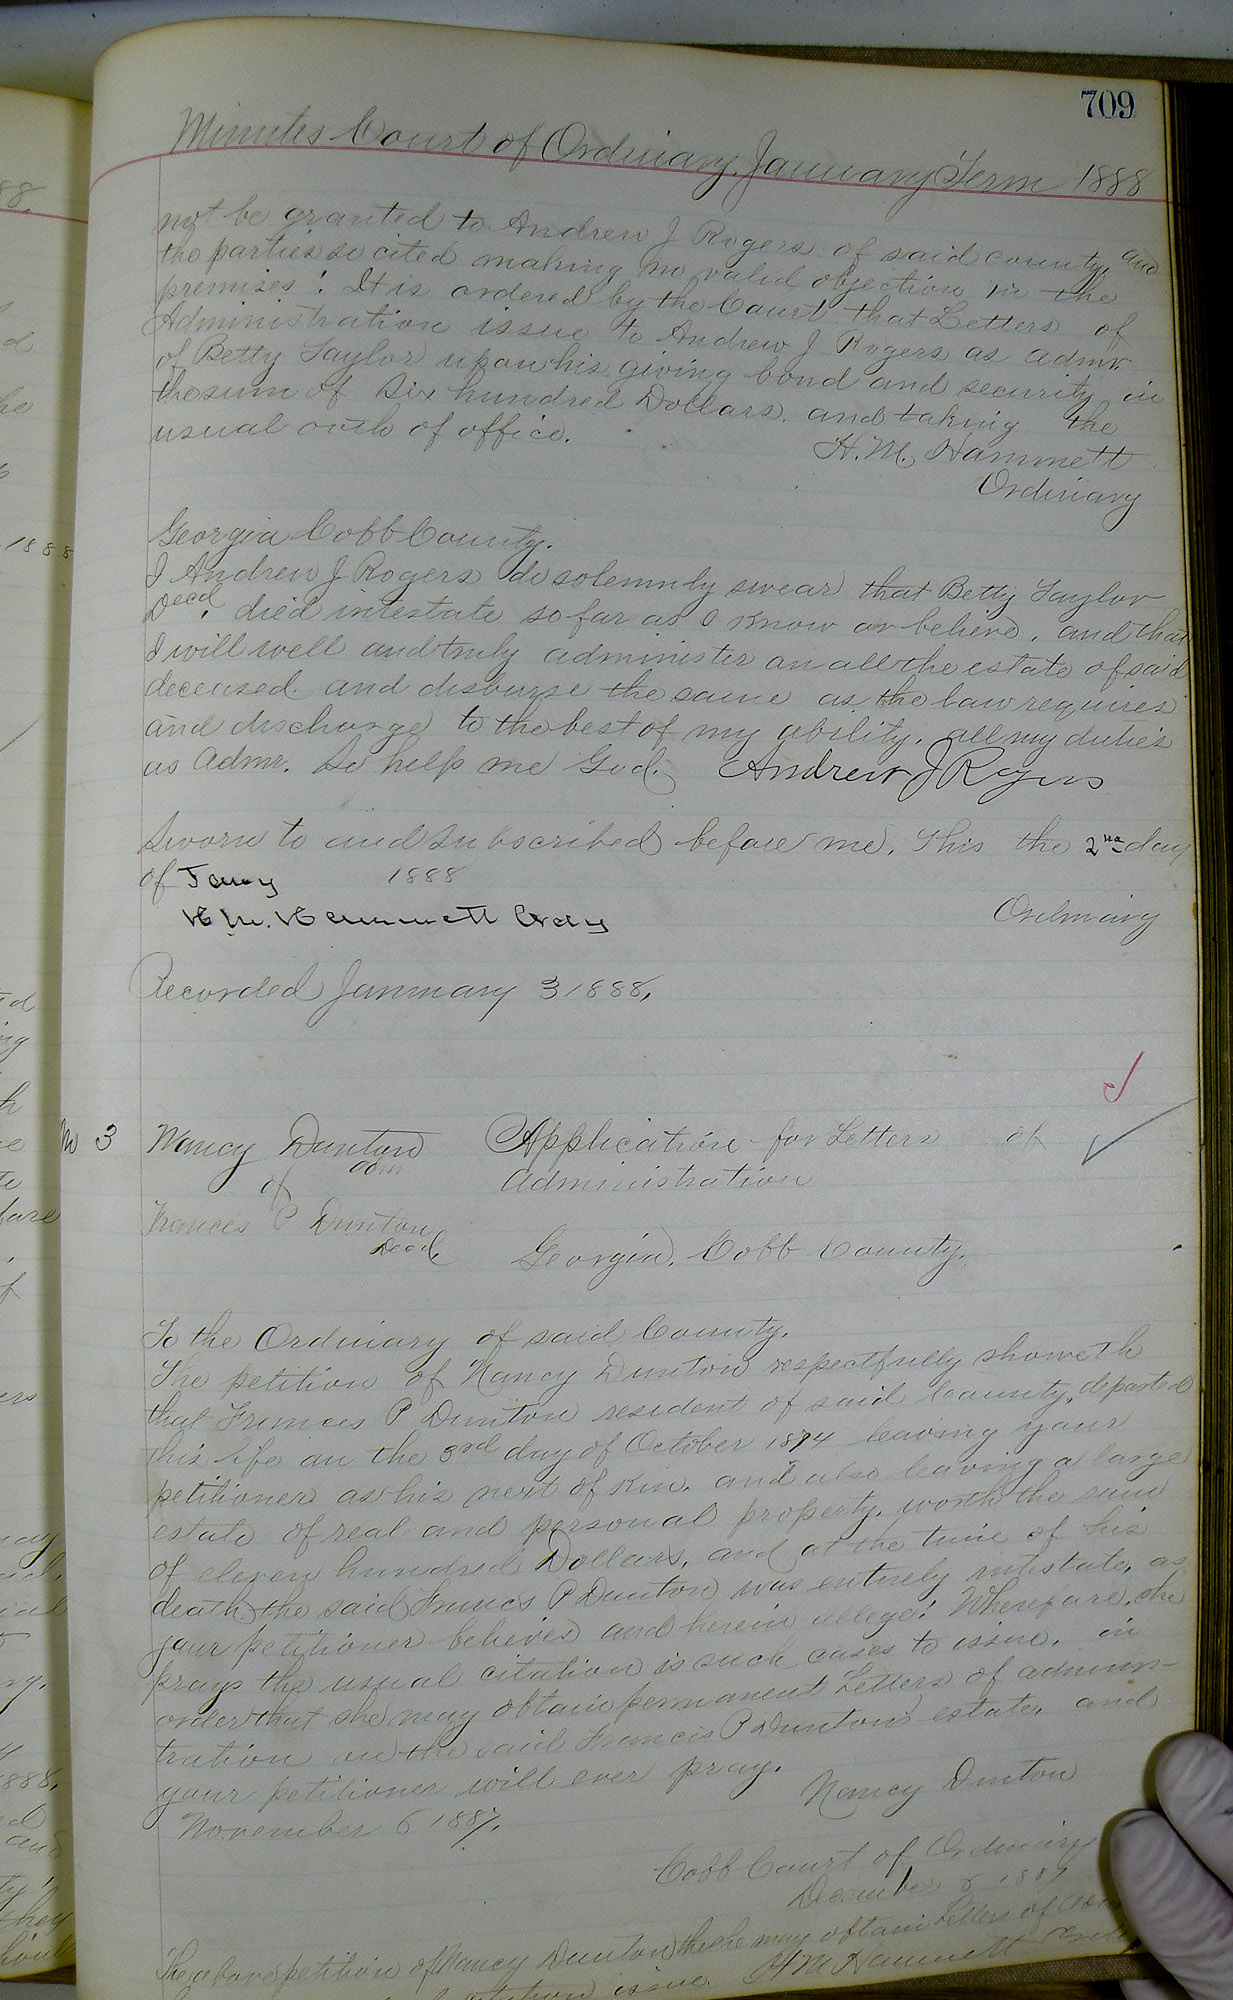 709
Minutes Court of Ordinary, January Term 1888
not be granted to Andrew J Rogers of said county, and
the parties so cited making no valid objection in the
premises: It is ordered by the Court that Letters of
Administration issue to Andrew J Rogers as admr
of Betty Taylor upon his giving bond and security in
the sum of Six hundred Dollars. and taking the
usual oath of office.
H. M. Hammett
Ordinary
Georgia Cobb County.
I Andrew J Rogers do solemnly swear that Betty Taylor
Decd, died intestate so far as I know or believe, and that
I will well and truly administer on all the estate of said
deceased. and disburse the same as the law requires
and discharge to the best of my ability, all my duties
as Admr. So help me God. Andrew J Rogers
Sworn to and subscribed before me, this the 2nd day
of Jany 1888
H M. Hammett Ordy Ordinary
Recorded January 3 1888,
M 3 Nancy Dunton Application for Letters of
adm Administration
of
Frances P Dunton
Decd Georgia, Cobb County,
To the Ordinary of said County,
The petition of Nancy Dunton respectfully showeth
that Frances P Dunton resident of said County, departed
this life on the 3rd day of October 1874 leaving your
petitioner as his next of kin, and also leaving a large
estate of real and personal property, worth the sum
of eleven hundred Dollars, and at the time of his
death, the said Francis P Dunton was entirely intestate, as
your petitioner believes and herein alleges: Wherefore, she
prays the usual citation is such cases to issue, in
order that she may obtain permanent Letters of adminis-
tration on the said Francis P Dunton's estate, and
your petitioner will ever pray.
Nancy Dunton
November 6 1887,
Cobb Court of Ordinary
December 6 1887
The above petition of Nancy Dunton that she may obtain Letters of
issue. H M Hammett